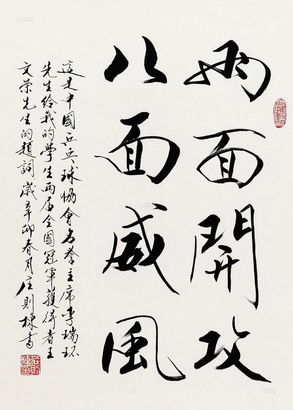 两面開攻
八面威風
這是中國乒乓球協會名誉主席李瑞环
先生給我的學生两届全國冠軍獲得者王
文荣先生的題詞歲辛卯春月庄則棟書